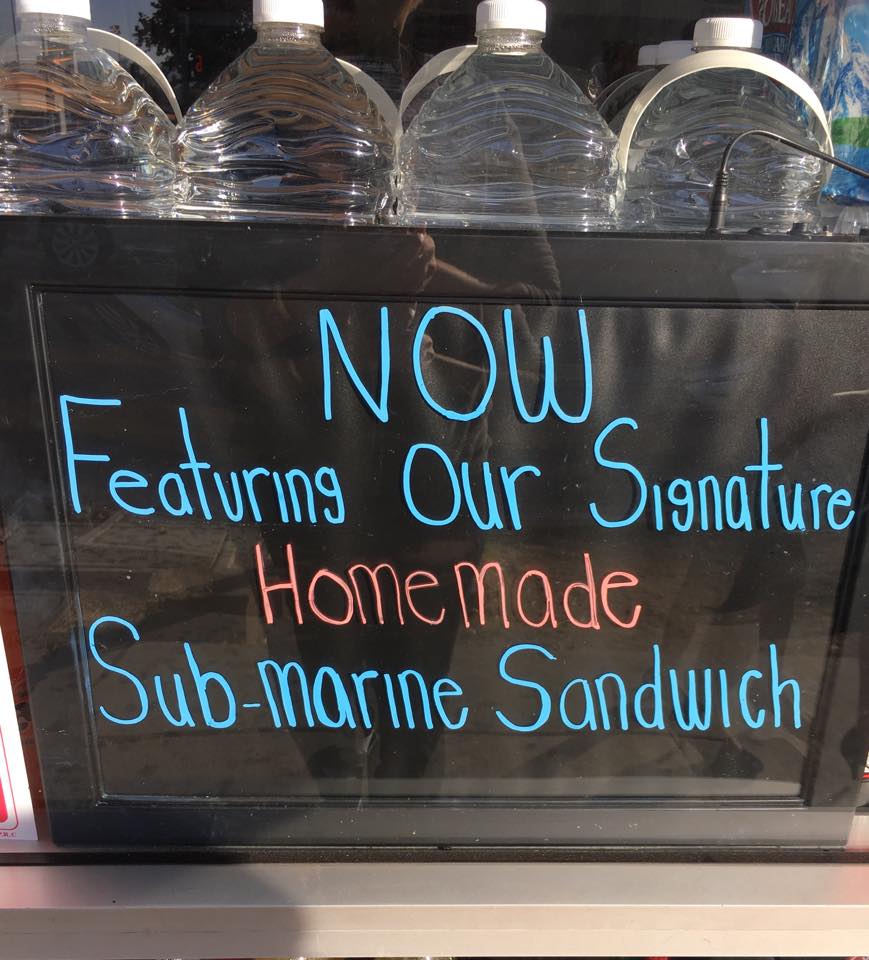 NOW
Featuring Our Signature
Homemade
Sub-marine Sandwich